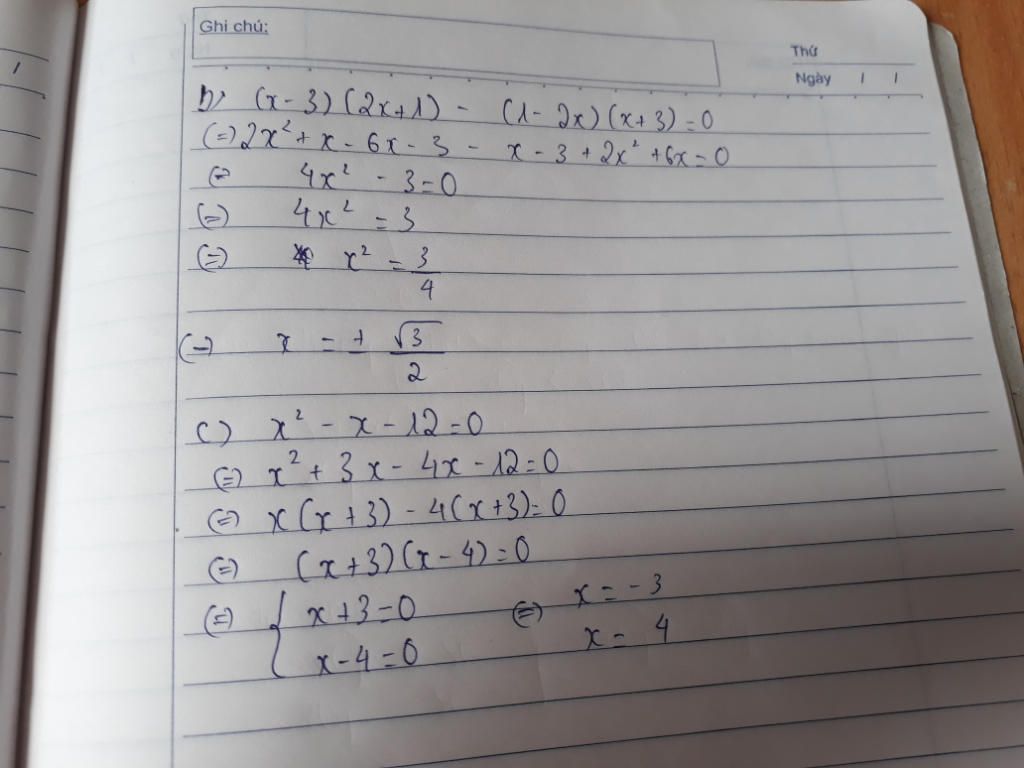 Ghi chú:
Thứ
Ngày / /
b) (x - 3)(2x+1) - (1 - 2x)(x+3) = 0
(=) 2x² + x - 6x - 3 - x - 3 + 2x² + 6x = 0
(=) 4x² - 3 = 0
(=) 4x² = 3
(=) x² = 3/4
(=) x = ± √3/2
c) x² - x - 12 = 0
(=) x² + 3x - 4x - 12 = 0
(=) x(x+3) - 4(x+3) = 0
(=) (x+3)(x-4) = 0
(=) { x+3 = 0 (=) x = -3
x-4 = 0 x = 4